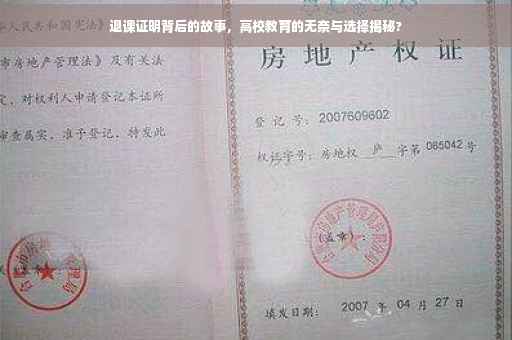 退课证明背后的故事，高校教育的无奈与选择揭秘？
人民共和国宪法》
市房地产管理法》及有关法
定，对权利人申请登记本证所
审查属实，准予登记，特发此
房地产权证
登记号：2007609602
权证字号：房地权 庐 字第 065042 号
(盖章)：
填发日期：2007 年 04 月 27 日